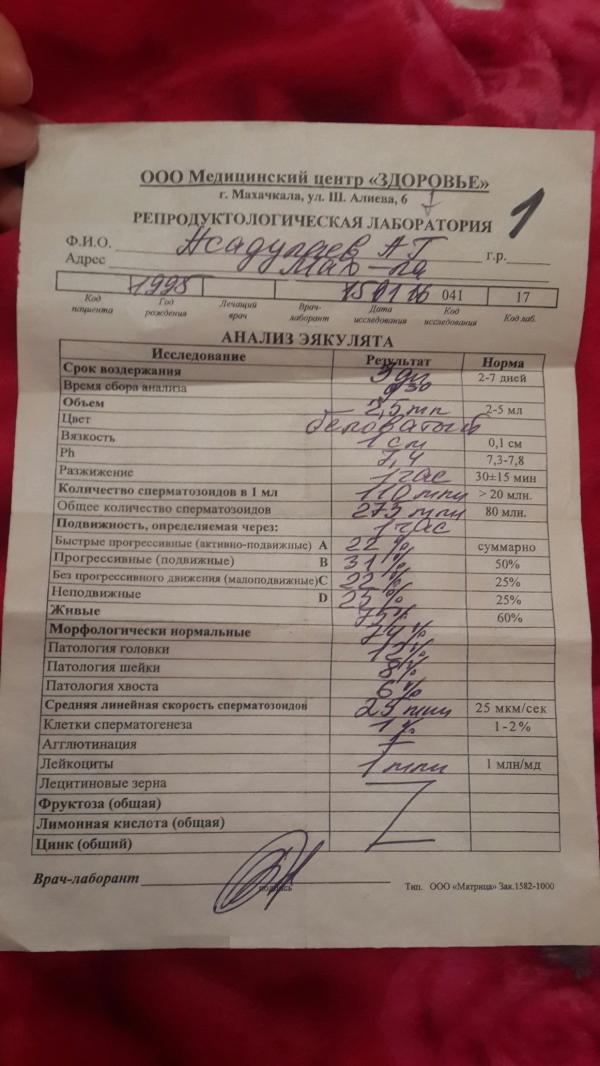 ООО Медицинский центр «ЗДОРОВЬЕ»
г. Махачкала, ул. Ш. Алиева, 6
РЕПРОДУКТОЛОГИЧЕСКАЯ ЛАБОРАТОРИЯ 1
Ф.И.О. Асадулаев А Г г.р.
Адрес Мах-ла
1995 15 01 16 041 17
Код пациента Год рождения Лечащий врач Врач-лаборант Дата исследования Код исследования Код лаб.
АНАЛИЗ ЭЯКУЛЯТА
Исследование Результат Норма
Срок воздержания 3 дн 2-7 дней
Время сбора анализа 9 30
Объем 2,5 мл 2-5 мл
Цвет беловатый
Вязкость 1 см 0,1 см
Ph 7,4 7,3-7,8
Разжижение 1 час 30±15 мин
Количество сперматозоидов в 1 мл 110 млн > 20 млн.
Общее количество сперматозоидов 275 млн 80 млн.
Подвижность, определяемая через: 1 час
Быстрые прогрессивные (активно-подвижные) A 22 % суммарно
Прогрессивные (подвижные) B 31 % 50%
Без прогрессивного движения (малоподвижные) C 22 % 25%
Неподвижные D 25 % 25%
Живые 75 % 60%
Морфологически нормальные 74 %
Патология головки 12 %
Патология шейки 8 %
Патология хвоста 6 %
Средняя линейная скорость сперматозоидов 25 мкм 25 мкм/сек
Клетки сперматогенеза 1 % 1-2%
Агглютинация
Лейкоциты 1 млн 1 млн/мд
Лецитиновые зерна
Фруктоза (общая)
Лимонная кислота (общая)
Цинк (общий)
Врач-лаборант
подпись
Тип. ООО «Матрица» Зак.1582-1000